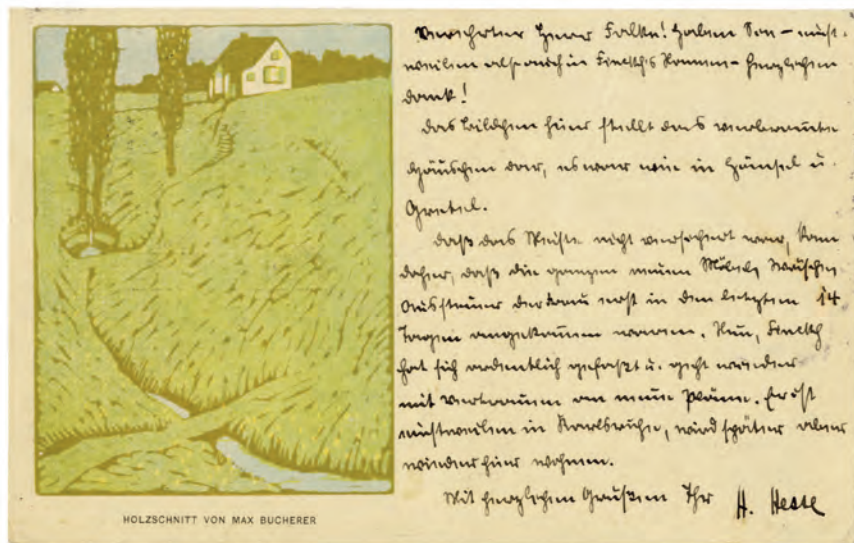 Verehrter Herr Falke! Haben Sie – einst-
weilen also auch in Finckh's Namen – herzlichen
Dank!
Das Bildchen hier stellt das verbrannte
Häuschen dar, es war wie in Hänsel u.
Gretel.
Daß das Meiste nicht versichert war, kam
daher, daß die ganzen neuen Möbel, Wäsche
Aussteuer der Frau erst in den letzten 14
Tagen angekommen waren. Nun, Finckh
hat sich ordentlich gefaßt u. geht wieder
mit Vertrauen an neue Pläne. Er ist
einstweilen in Karlsruhe, wird später aber
wieder hier wohnen.
Mit herzlichen Grüßen Ihr H. Hesse
HOLZSCHNITT VON MAX BUCHERER